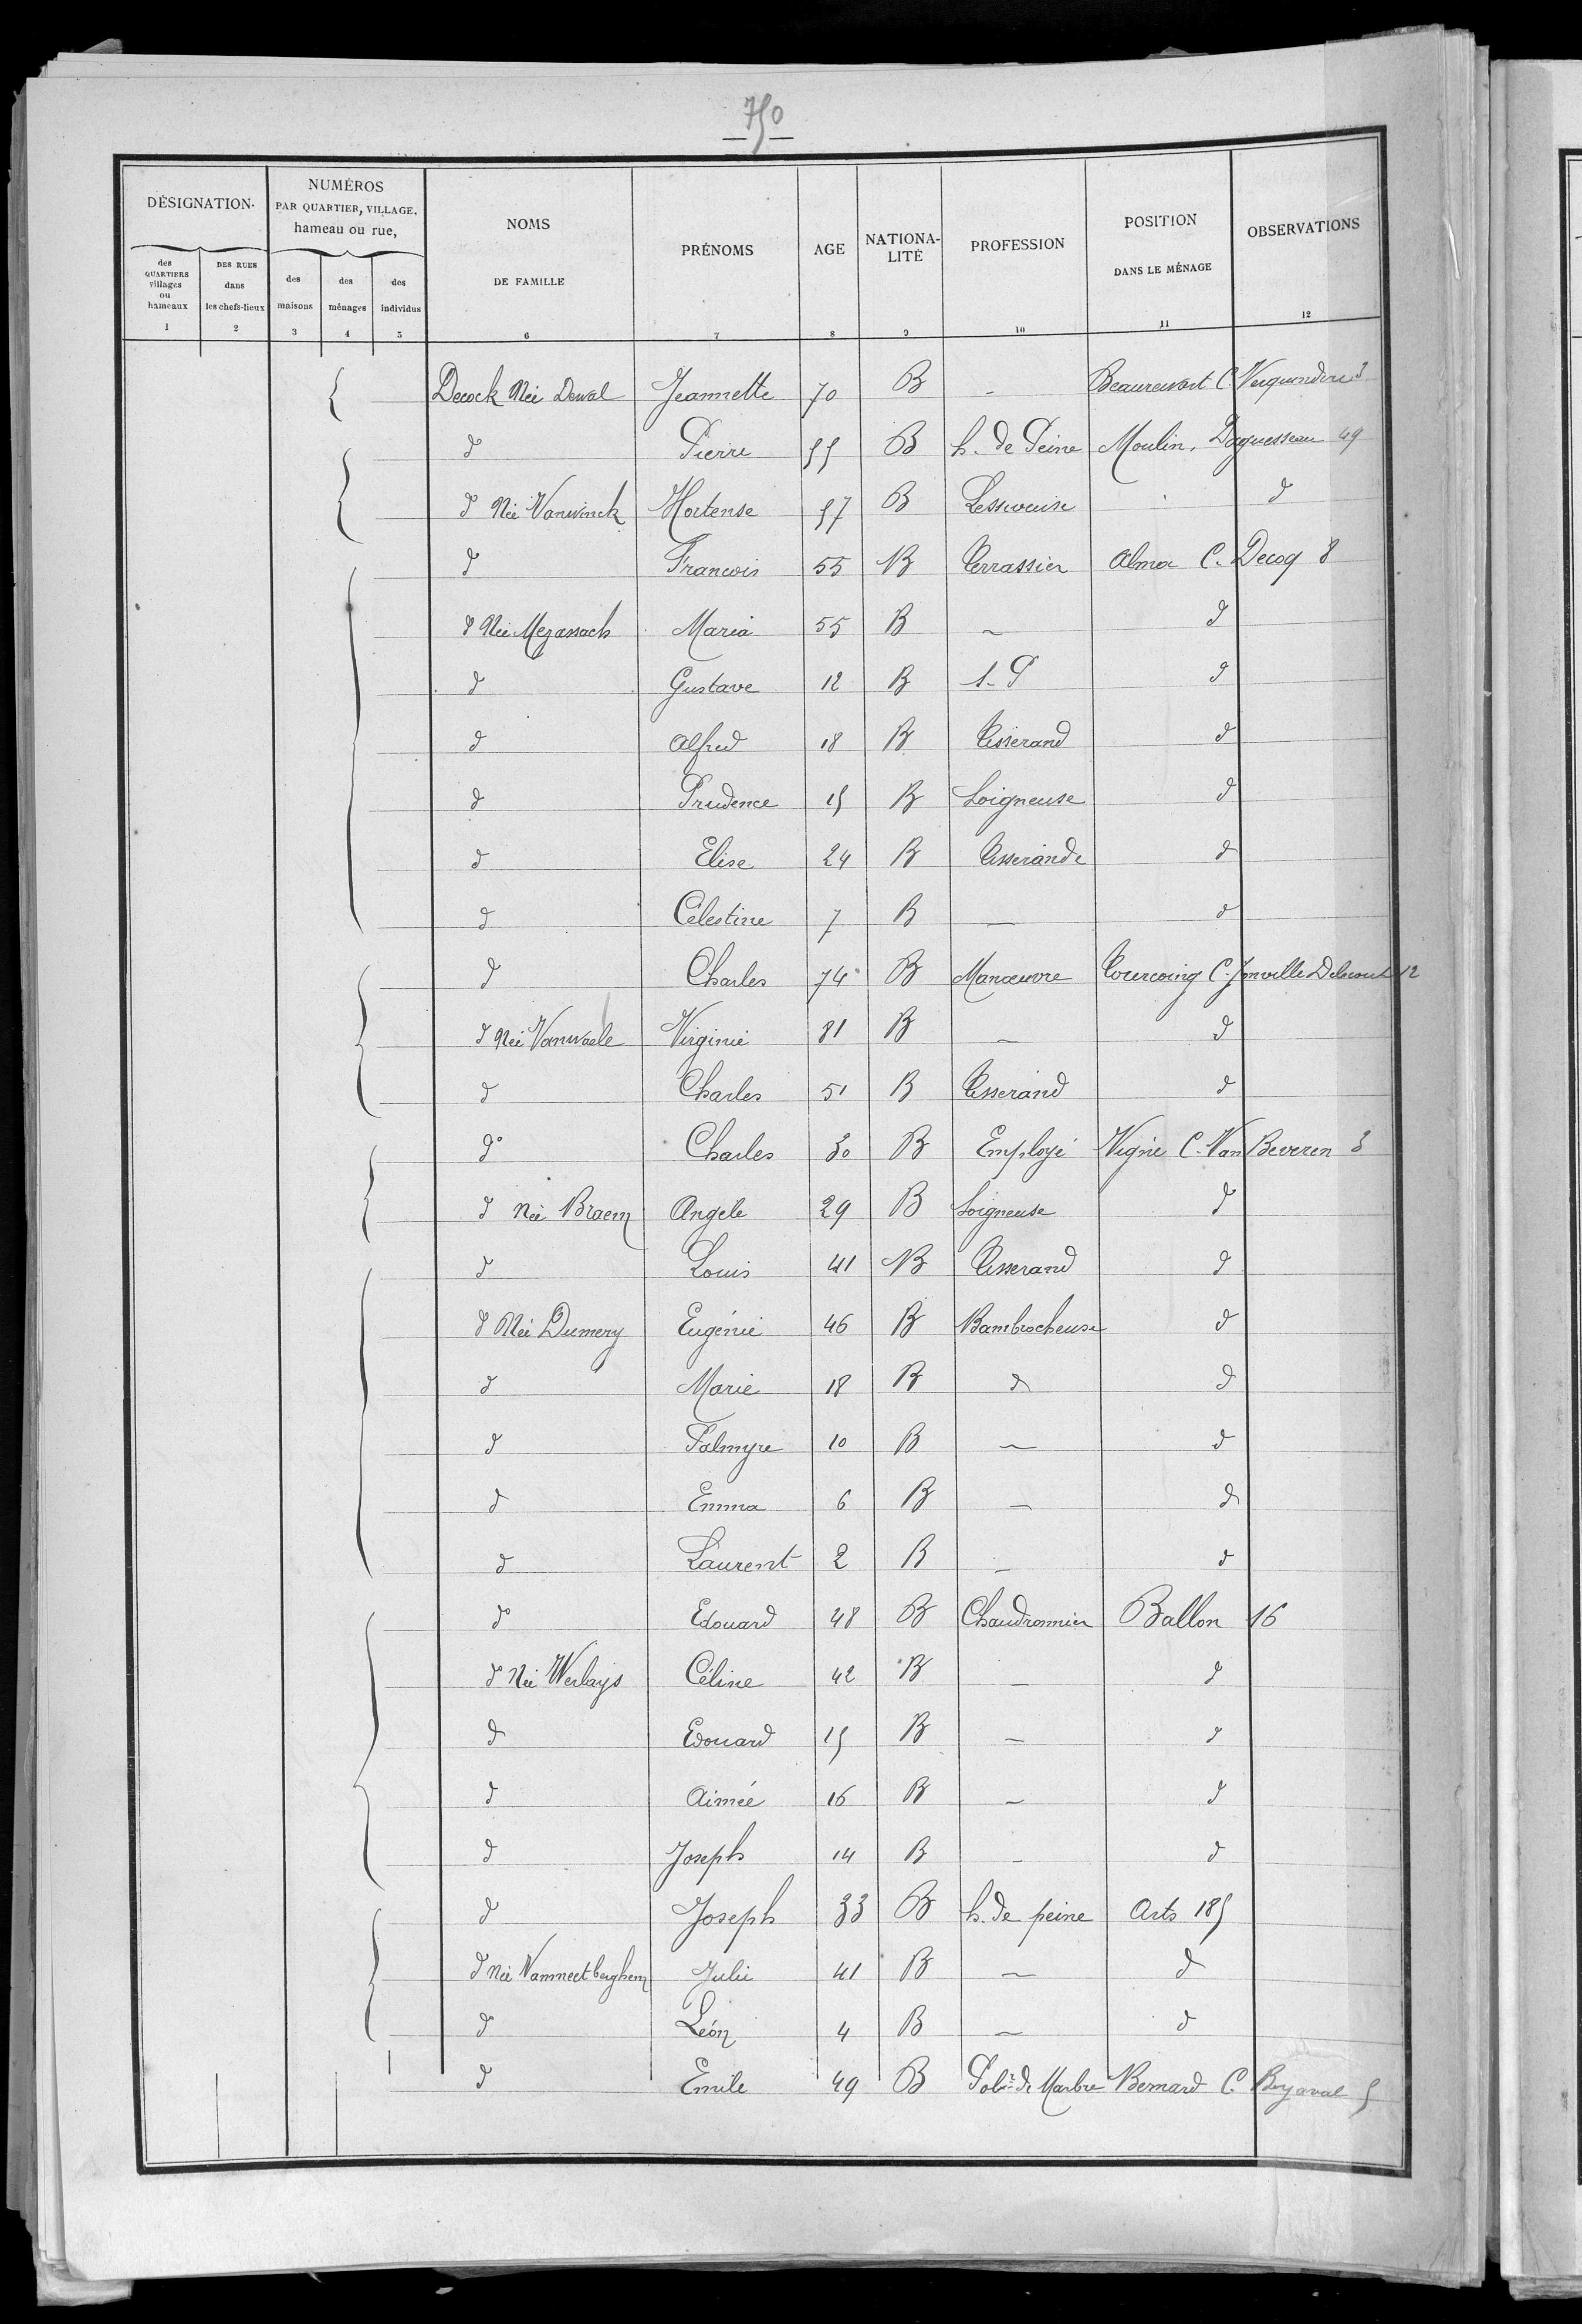 750
DÉSIGNATION.
NUMÉROS
PAR QUARTIER, VILLAGE,
hameau ou rue,
NOMS
DE FAMILLE
PRÉNOMS
AGE
NATIONA-
LITÉ
PROFESSION
POSITION
DANS LE MÉNAGE
OBSERVATIONS
des
QUARTIERS
villages
ou
hameaux
DES RUES
dans
les chefs-lieux
des
maisons
des
ménages
des
individus
1 2 3 4 5 6 7 8 9 10 11 12
Decock Née Dewal Jeannette 70 B - Beaurewart C. 3
d Pierre 55 B h. de Peine Moulin, Daguesseau 49
d Née Vanwinck Hortense 57 B Lessiveuse d
d Francois 55 B Terrassier Alma C. Decoq 8
d Née Maria 55 B - d
d Gustave 12 B S. P d
d Alfred 18 B Tisserand d
d Prudence 15 B Soigneuse d
d Elise 24 B Tisserande d
d Célestine 7 B - d
d Charles 74 B Manœuvre Tourcoing C. Jonville 12
d Née Vanwaele Virginie 81 B - d
d Charles 51 B Tisserand d
d° Charles 30 B Employé Vigne C. Van Beveren 3
d née Braem Angele 29 B Soigneuse d
d Louis 41 B Tisserand d
d Née Dumery Eugénie 46 B Bambrocheuse d
d Marie 18 B d d
d Palmyre 10 B - d
d Emma 6 B - d
d Laurent 2 B - d
d° Edouard 48 B Chaudronnier Ballon 16
d Née Werbays Céline 42 B - d
d Edouard 15 B - d
d Aimée 16 B - d
d Joseph 14 B - d
d Joseph 33 B h. de peine Arts 185
d née Vanmeetberghem Julie 41 B - d
d Léon 4 B - d
d Emile 49 B Polr de Marbre Bernard C. Boyaval 5